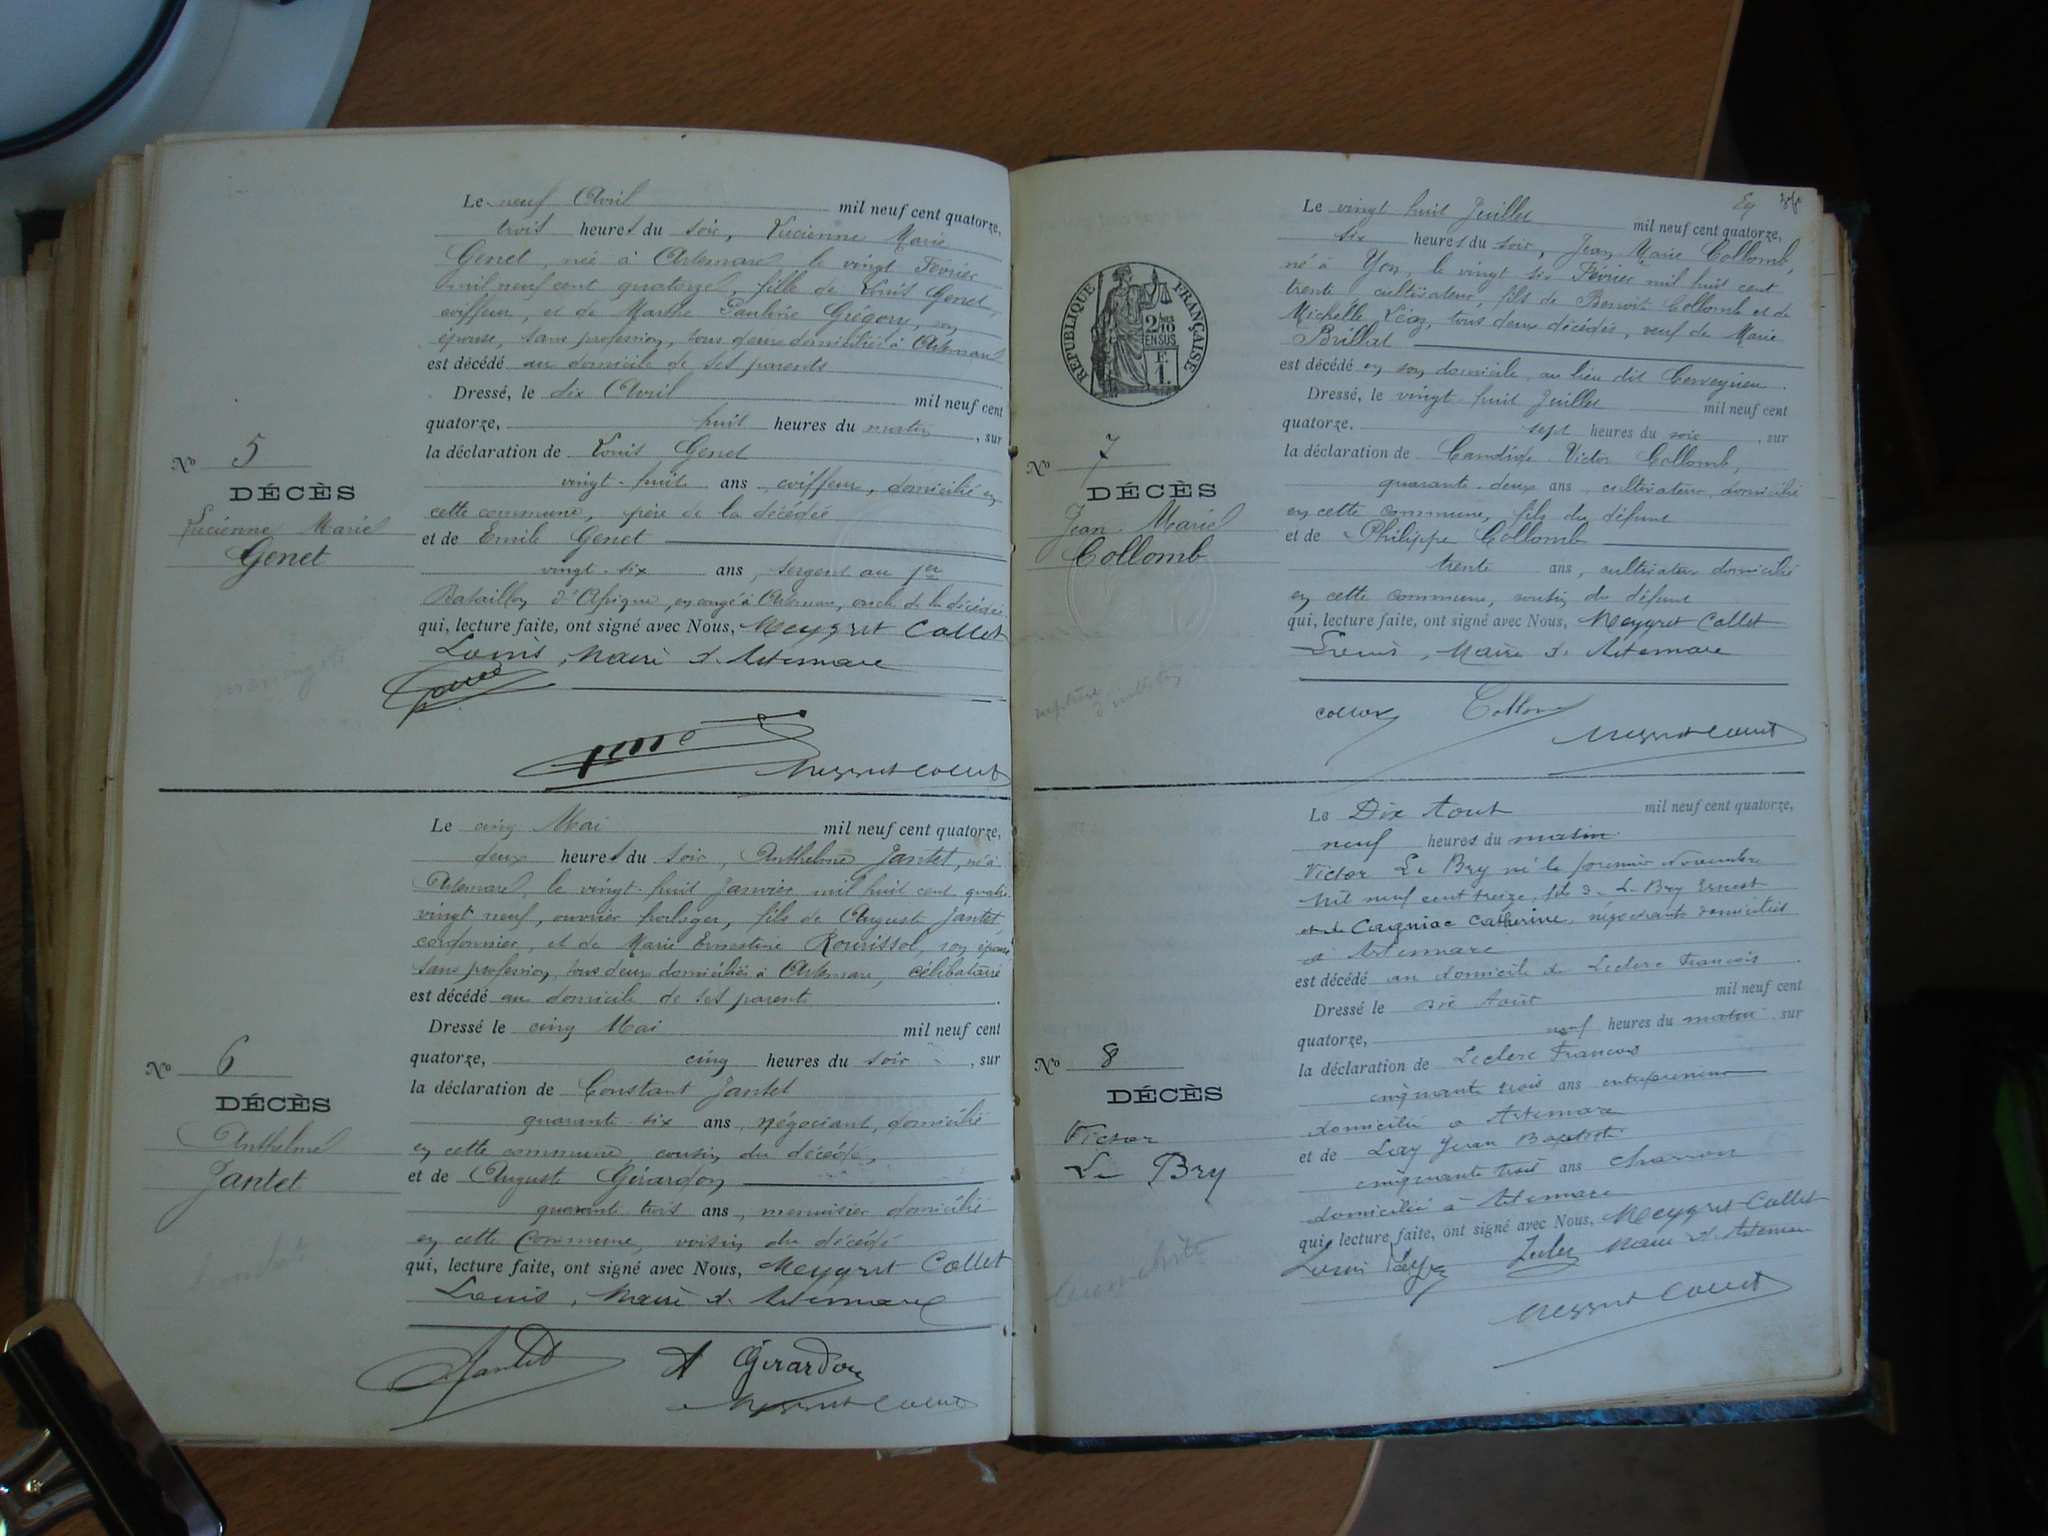 Le neuf Avril mil neuf cent quatorze,
trois heures du soir, Lucienne Marie
Genet, née à Artemare le vingt Février
mil neuf cent quatorze, fille de Louis Genet,
coiffeur, et de Marthe Pauline Grégory, son
épouse, sans profession, tous deux domiciliés à Artemare
est décédé au domicile de ses parents
Dressé, le dix Avril mil neuf cent
quatorze, huit heures du matin, sur
la déclaration de Louis Genet
vingt-huit ans, coiffeur, domicilié en
cette commune, père de la décédée
et de Emile Genet
vingt-six ans, sergent au 1er
Bataillon d'Afrique, en congé à Artemare, oncle de la décédée
qui, lecture faite, ont signé avec Nous, Meygret Collet
Louis, Maire d'Artemare
No 5
DÉCÈS
Lucienne Marie
Genet
Meygret Collet
Le cinq Mai mil neuf cent quatorze,
deux heures du soir, Anthelme Jantet, né à
Artemare, le vingt-huit Janvier mil huit cent quatre
vingt neuf, ouvrier horloger, fils de Auguste Jantet,
cordonnier, et de Marie Ernestine Rourissol, son épouse
sans profession, tous deux domiciliés à Artemare, célibataire
est décédé au domicile de ses parents
Dressé le cinq Mai mil neuf cent
quatorze, cinq heures du soir, sur
la déclaration de Constant Jantet
quarante-six ans, négociant, domicilié
en cette commune, cousin du décédé,
et de Auguste Girardon
quarante trois ans, menuisier domicilié
en cette Commune, voisin du décédé
qui, lecture faite, ont signé avec Nous, Meygret Collet
Louis, Maire d'Artemare
No 6
DÉCÈS
Anthelme
Jantet
Jantet A Girardon
Meygret Collet
Le vingt huit Juillet mil neuf cent quatorze,
six heures du soir, Jean Marie Collomb,
né à Yon, le vingt six Février mil huit cent
trente cultivateur, fils de Benoit Collomb et de
Michelle Léaz, tous deux décédés, veuf de Marie
Brillat
est décédé en son domicile, au lieu dit Cerveyrieu.
Dressé, le vingt huit Juillet mil neuf cent
quatorze, sept heures du soir, sur
la déclaration de Candide Victor Collomb,
quarante-deux ans, cultivateur, domicilié
en cette commune, fils du défunt
et de Philippe Collomb
trente ans, cultivateur domicilié
en cette commune, cousin du défunt
qui, lecture faite, ont signé avec Nous, Meygret Collet
Louis, Maire d'Artemare
RÉPUBLIQUE FRANÇAISE
2/10
EN SUS
1 F.
No 7
DÉCÈS
Jean-Marie
Collomb
Collomb Meygret Collet
Le Dix Aout mil neuf cent quatorze,
neuf heures du matin
Victor Le Bry né le premier Novembre
Mil neuf cent treize, fils de Le Bry Ernest
et de Caugniac Catherine, négociants domiciliés
à Artemare
est décédé au domicile de Leclerc Francois
Dressé le dix Août mil neuf cent
quatorze, neuf heures du matin, sur
la déclaration de Leclerc Francois
cinquante trois ans entrepreneur
domicilié à Artemare
et de Lay Jean Baptiste
cinquante trois ans charron
domicilié à Artemare
qui, lecture faite, ont signé avec Nous, Meygret Collet
Louis Maire d'Artemare
No 8
DÉCÈS
Victor
Le Bry
Meygret Collet